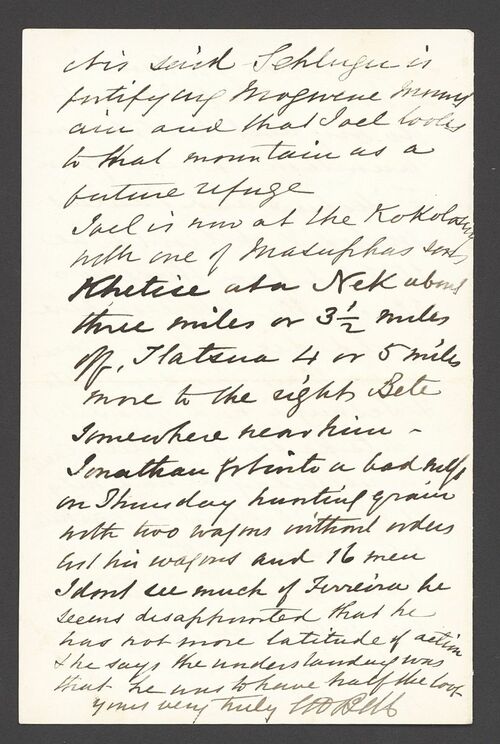 it is said Sehlugu is
fortifying Mogwene Mount
ain and that Joel looks
to that mountain as a
future refuge
Joel is now at the Kokolosing
with one of Masuphas sons
Khetise at a Nek about
three miles or 3½ miles
off, Tlatsua 4 or 5 miles
more to the right Bete
Somewhere near him -
Jonathan got into a bad
on Thursday hunting grain
with two wagons without orders
lost his wagons and 16 men
I dont see much of Ferreira he
seems disappointed that he
has not more latitude of action
& he says the understanding was
that he was to have half the loot
yours very truly CD Bell